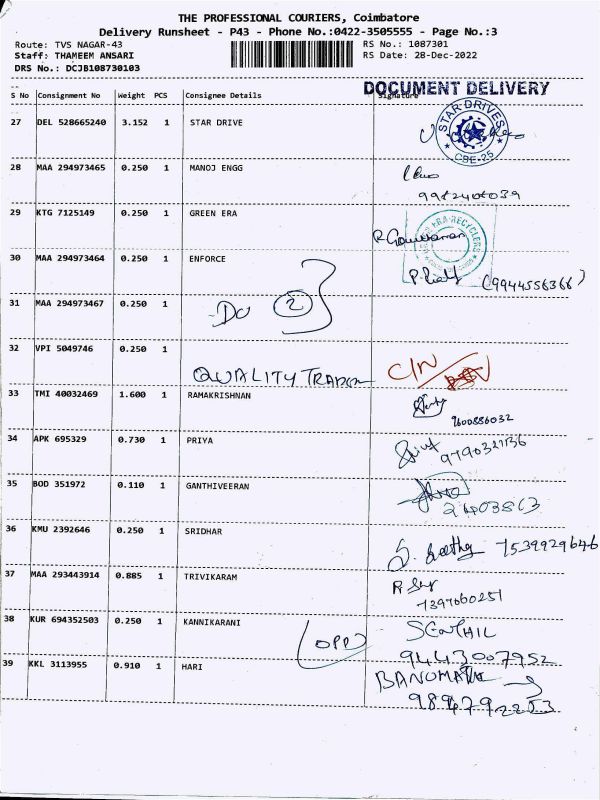 THE PROFESSIONAL COURIERS, Coimbatore
Delivery Runsheet - P43 - Phone No.:0422-3505555 - Page No.:3
Route: TVS NAGAR-43 RS No.: 1087301
Staff: THAMEEM ANSARI RS Date: 28-Dec-2022
DRS No.: DCJB108730103
DOCUMENT DELIVERY
S No Consignment No Weight PCS Consignee Details Signature
27 DEL 528665240 3.152 1 STAR DRIVE
STAR DRIVES
CBE-25
28 MAA 294973465 0.250 1 MANOJ ENGG
29 KTG 7125149 0.250 1 GREEN ERA
ERA RECYCLERS
30 MAA 294973464 0.250 1 ENFORCE
(9944556366)
31 MAA 294973467 0.250 1
-Do 2
32 VPI 5049746 0.250 1
QUALITY C/N
33 TMI 40032469 1.600 1 RAMAKRISHNAN
9600886032
34 APK 695329 0.730 1 PRIYA
35 BOD 351972 0.110 1 GANTHIVEERAN
36 KMU 2392646 0.250 1 SRIDHAR
7539929646
37 MAA 293443914 0.885 1 TRIVIKARAM
7397060251
38 KUR 694352503 0.250 1 KANNIKARANI
SENTHIL
(OPP)
9443007952
39 KKL 3113955 0.910 1 HARI